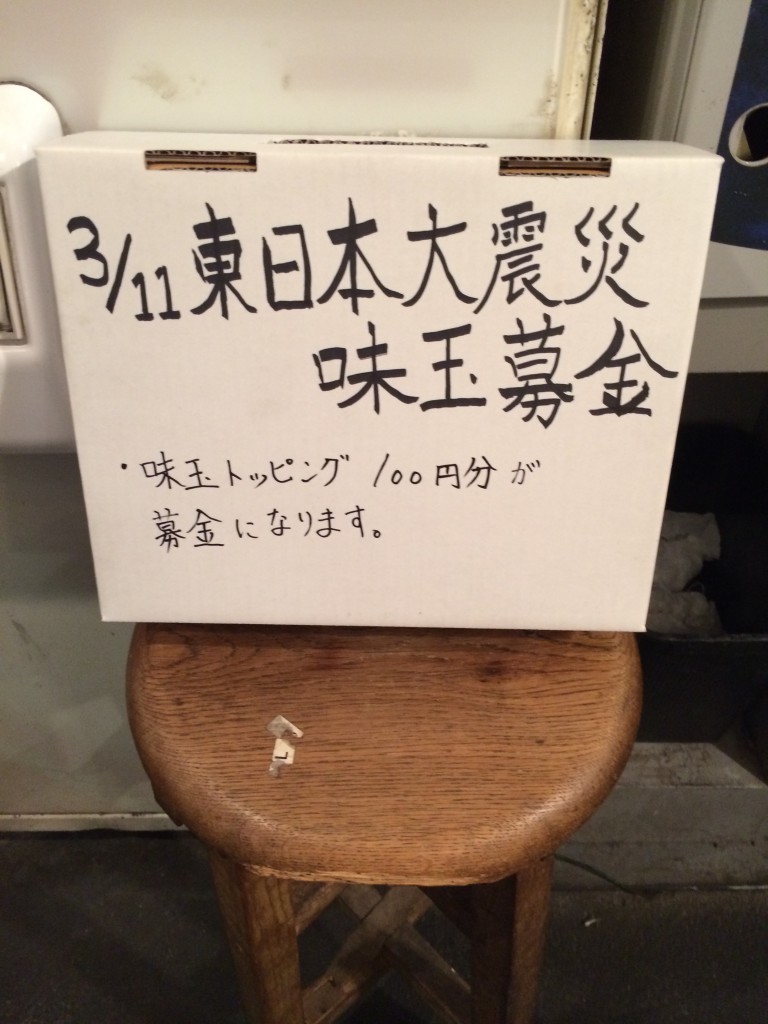 3/11東日本大震災
味玉募金
・味玉トッピング 100円分が
募金になります。
L